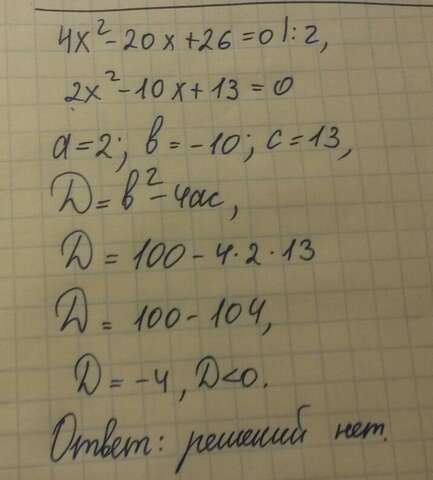 4x²-20x+26=0 |:2,
2x²-10x+13=0
a=2; b=-10; c=13,
D=b²-4ac,
D=100-4·2·13
D=100-104,
D=-4, D<0.
Ответ: решений нет.